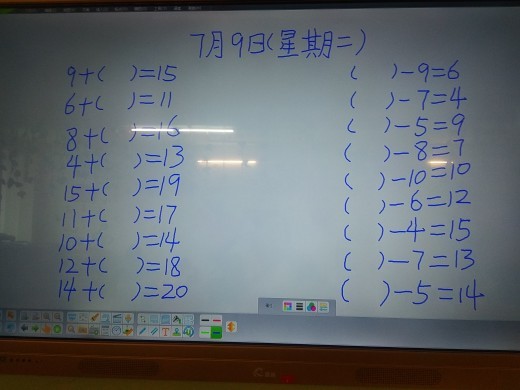 7月9日(星期二)
9+( )=15
6+( )=11
8+( )=16
4+( )=13
15+( )=19
11+( )=17
10+( )=14
12+( )=18
14+( )=20
( )-9=6
( )-7=4
( )-5=9
( )-8=7
( )-10=10
( )-6=12
( )-4=15
( )-7=13
( )-5=14